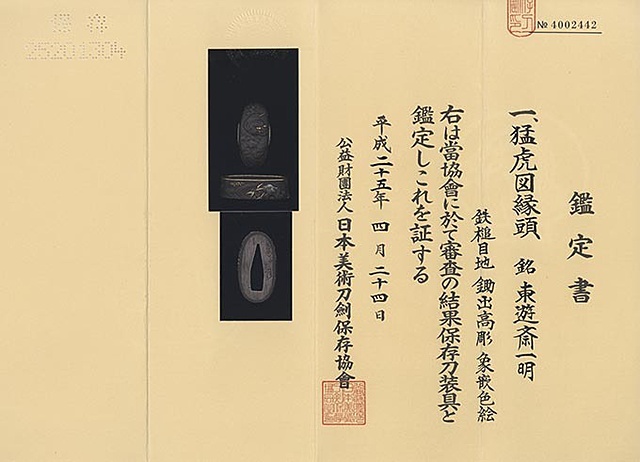 № 4002442
鑑定書
一、猛虎図縁頭 銘 東遊斎一明
鉄槌目地 鋤出高彫 象嵌色絵
右は當協會に於て審査の結果保存刀装具と
鑑定しこれを証する
平成二十五年 四月 二十四日
公益財團法人 日本美術刀劍保存協會